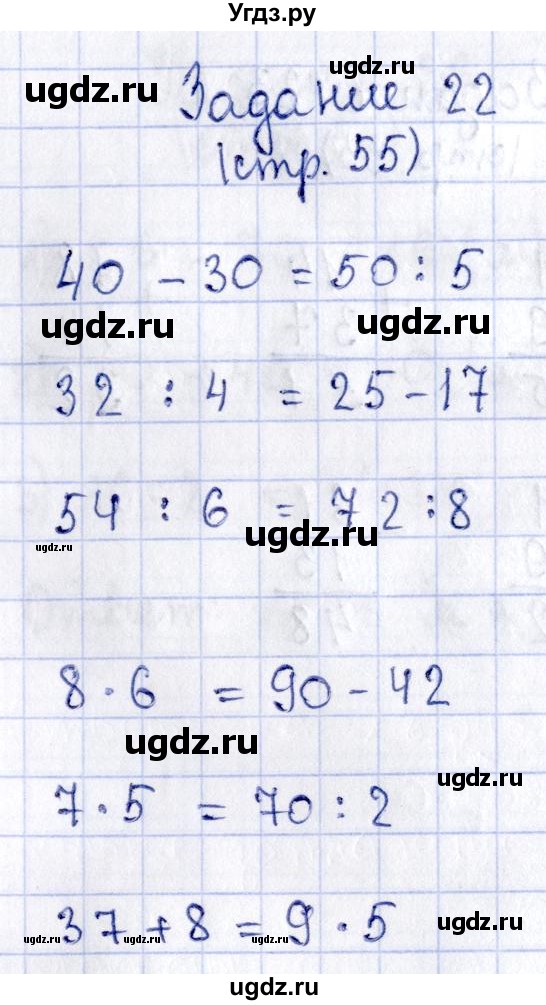 Угдз.ру
ugdz.ru
ugdz.ru
Задание 22
(стр. 55)
40 - 30 = 50 : 5
ugdz.ru
ugdz.ru
32 : 4 = 25 - 17
54 : 6 = 72 : 8
ugdz.ru
ugdz.ru
8 · 6 = 90 - 42
ugdz.ru
ugdz.ru
7 · 5 = 70 : 2
37 + 8 = 9 · 5
ugdz.ru
ugdz.ru
ugdz.ru
ugdz.ru
ugdz.ru
ugdz.ru